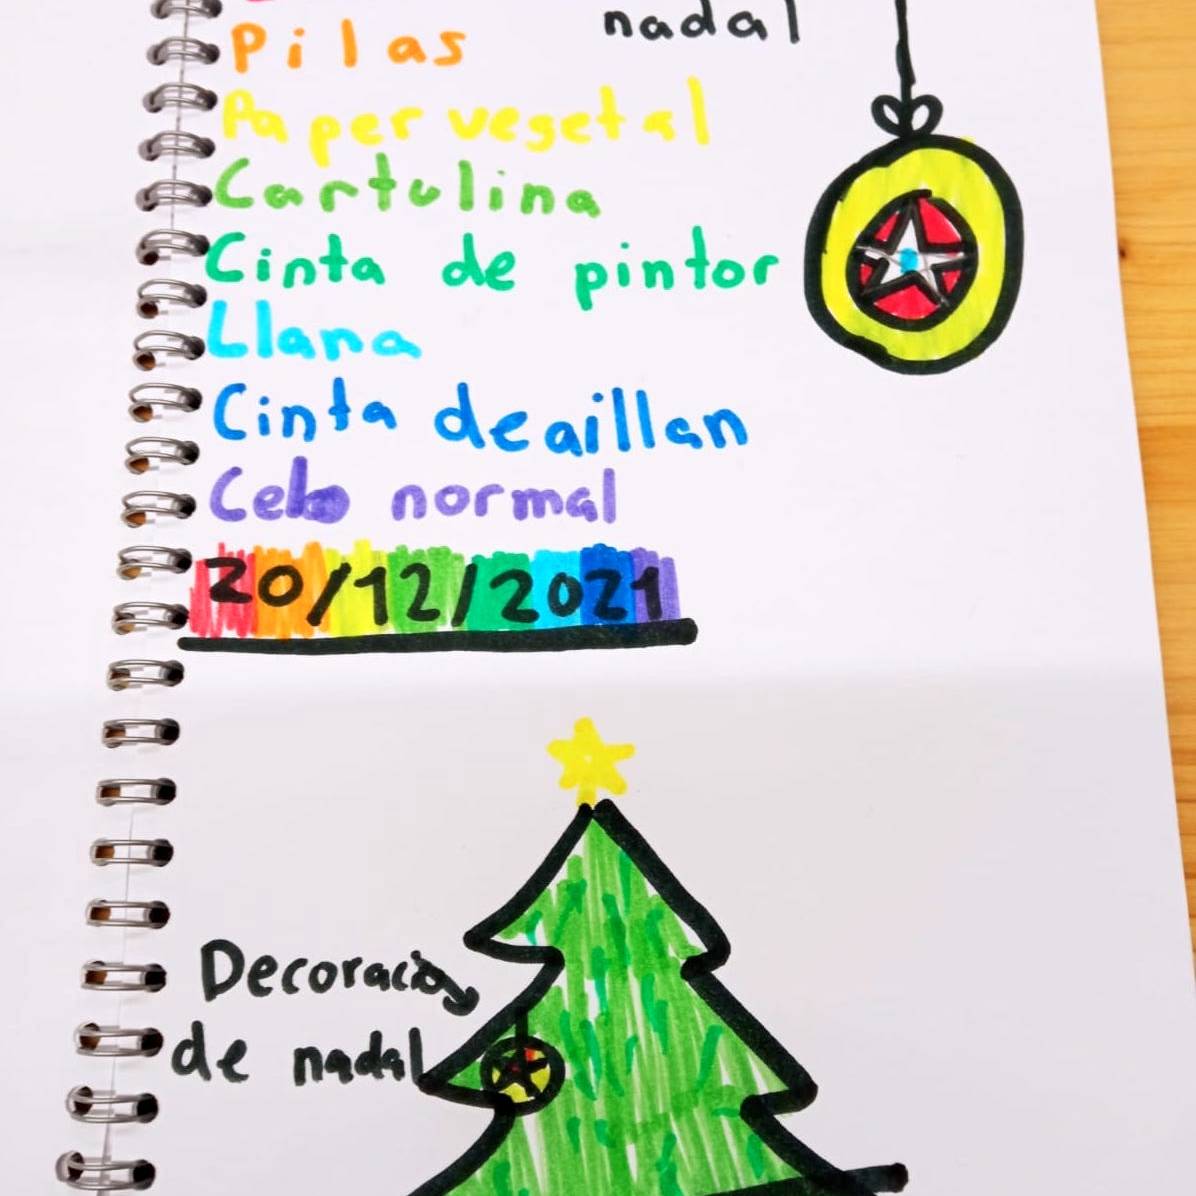 nadal
Pilas
Paper vegetal
Cartulina
Cinta de pintor
Llana
Cinta de aillan
Celo normal
20/12/2021
Decoració
de nadal